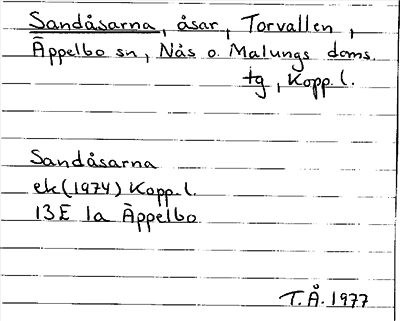 Sandåsarna, åsar, Torvallen,
Äppelbo sn, Nås o. Malungs doms.
tg, Kopp. l.
Sandåsarna
ek (1974) Kopp. l.
13E 1a Äppelbo
T.Å. 1977